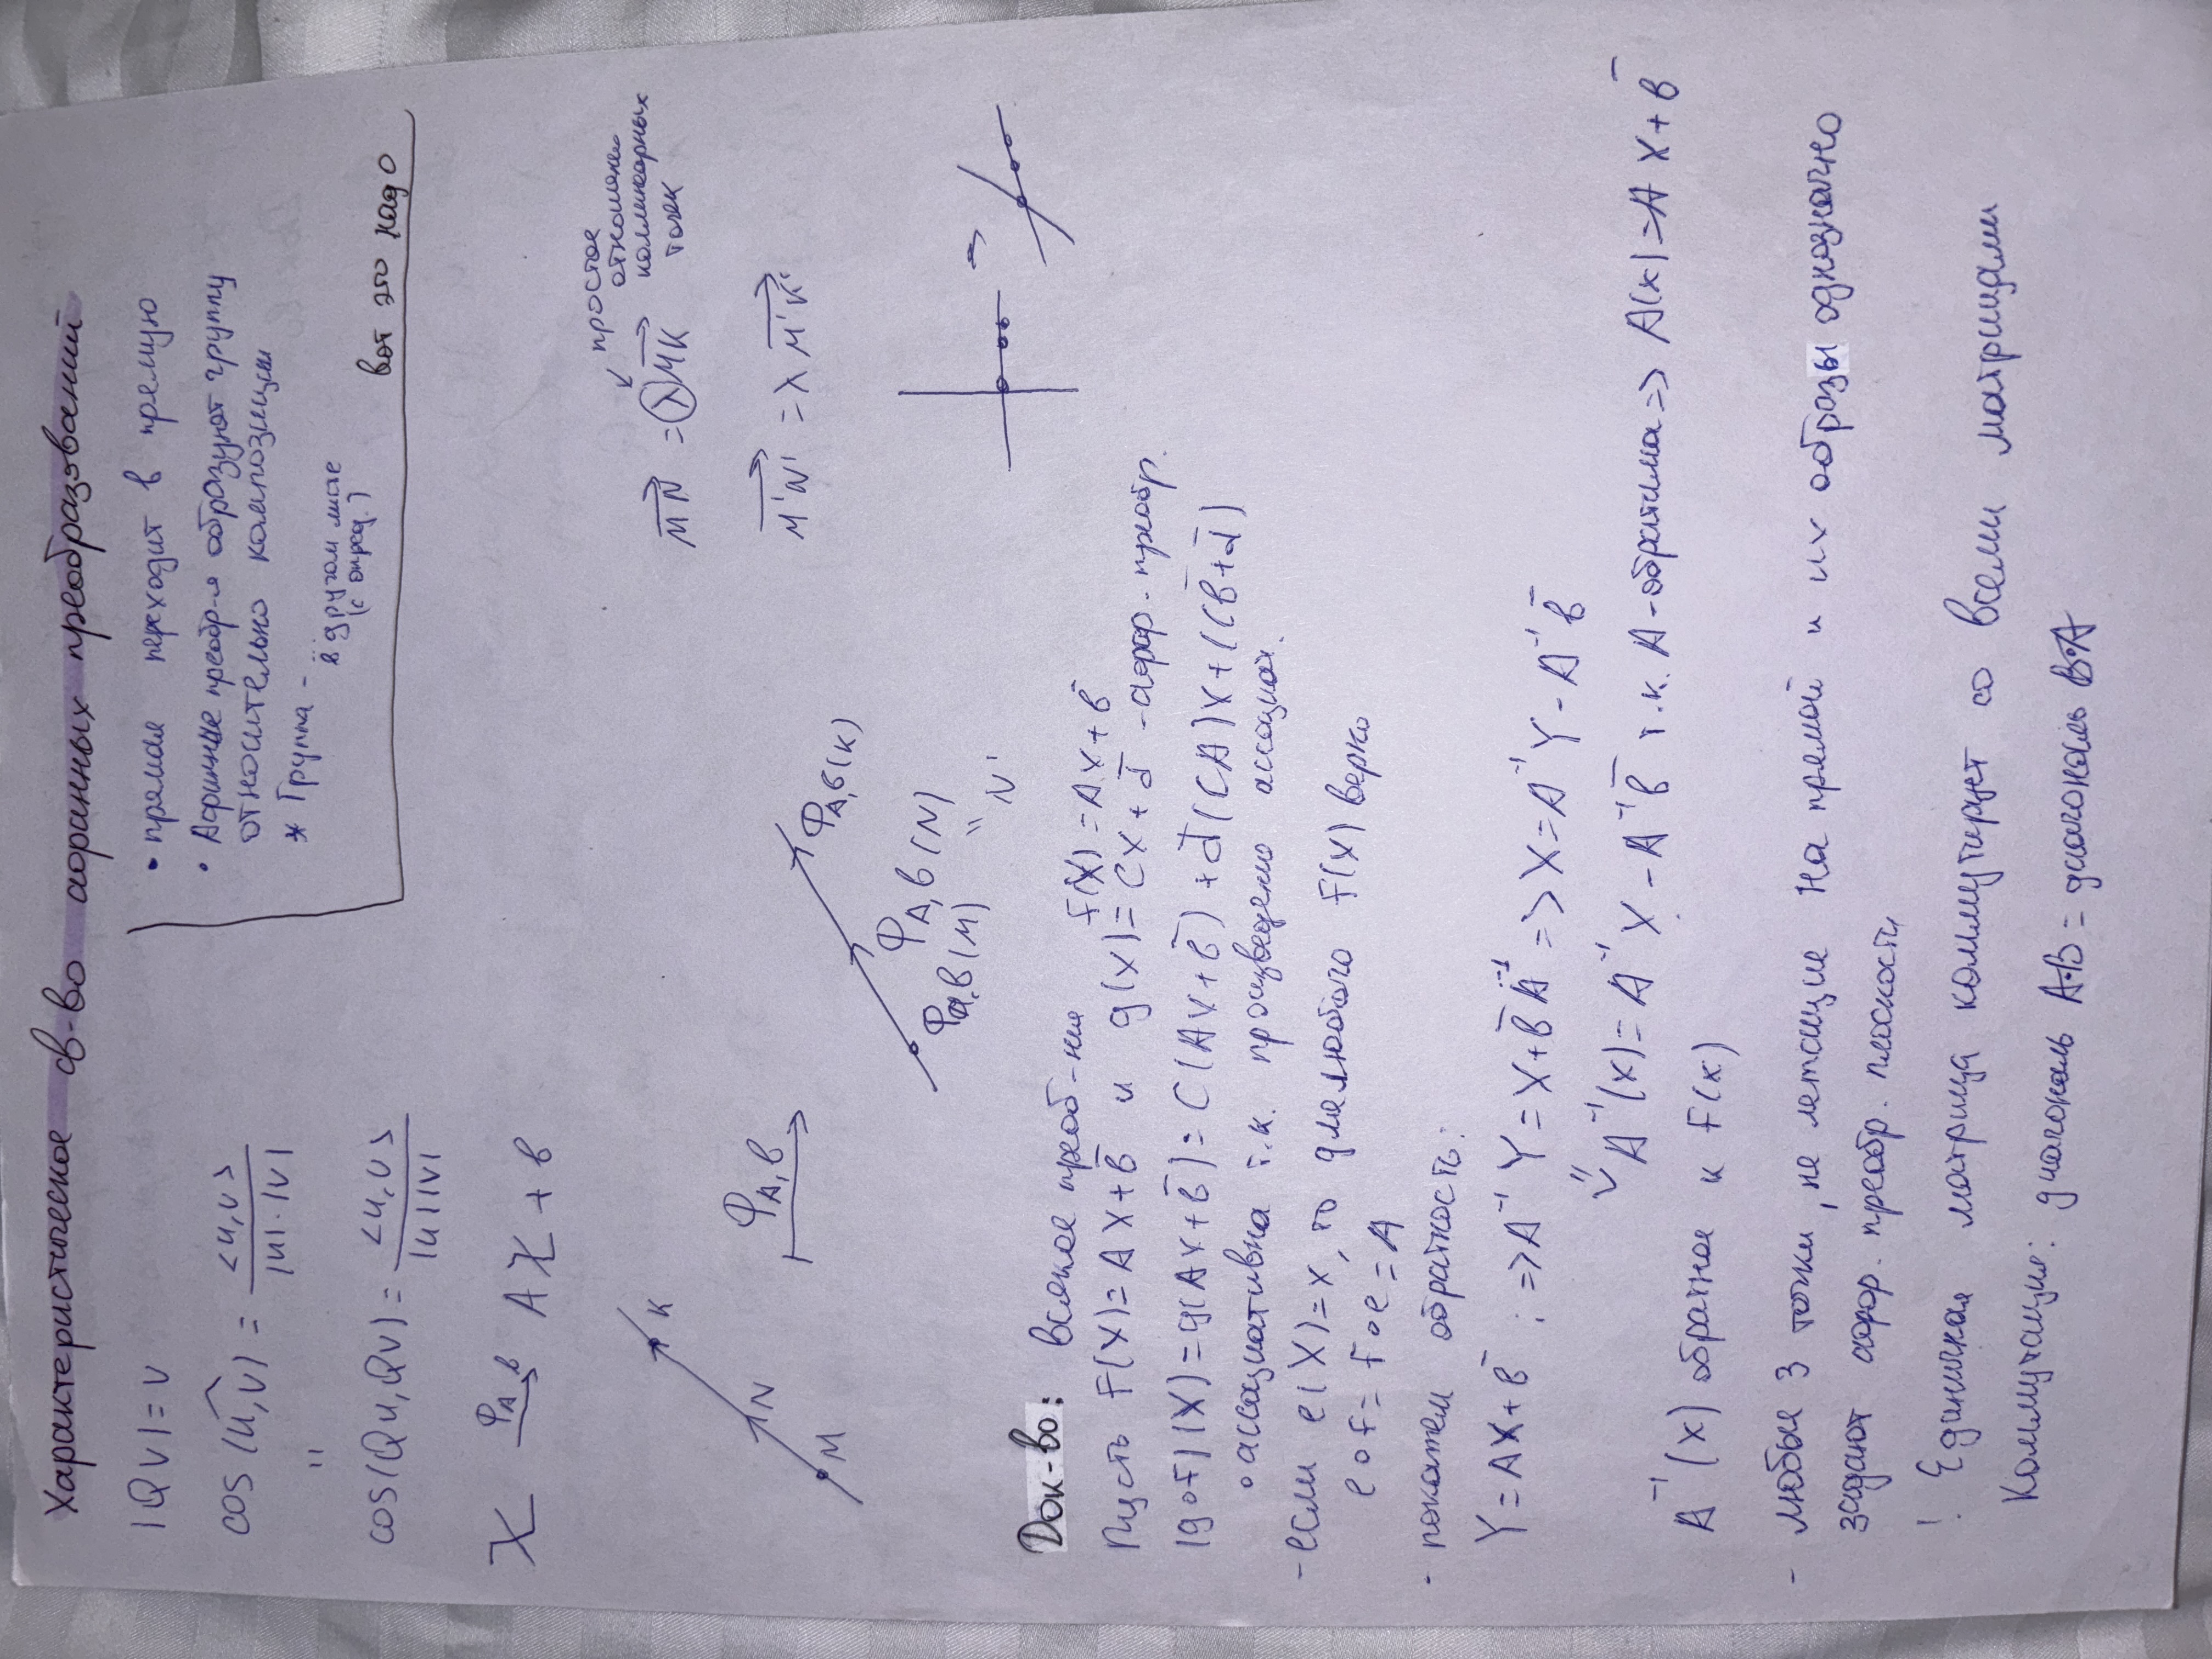 Характеристическое св-во афинных преобразований
|QV| = V
cos(u,v) = <u,v> / |u|·|v|
"
cos(Qu,Qv) = <u,v> / |u||v|
• прямая переходит в прямую
• Афинные преобр-я образуют группу
относительно композиции
* Группа - ...
в другом листе
(с опред.)
вот это надо
X Φ_A b → AX + b
K
N
M
Φ_A,b
Φ_A,b(K)
Φ_A,b(N)
Φ_A,b(M)
" N'
простое
отношение
коллинеарных
точек
MN = λMK
M'N' = λ M'K'
Док-во: всякое преоб-ния f(X) = AX + b̄
Пусть F(X) = AX + b̄ и g(x) = CX + d̄ - афф. преобр.
(g∘f)(X) = g(AX + b̄) = C(AX + b̄) + d̄ (CA)X + (Cb̄ + d̄)
∘ ассоциативна т.к. произведено ассоциат.
- если e(X) = x, то для любого F(X) верно
e∘f = f∘e = A
- покажем обратность:
Y = AX + b̄ ; => A⁻¹ Y = X + b̄ A⁻¹ => X = A⁻¹ Y - A⁻¹ b̄
A⁻¹(x) = A⁻¹ X - A⁻¹ b̄ т.к. A - обратима => A(x) = A X + b̄
A⁻¹(x) обратное к F(x)
- любые 3 точки, не лежащие на прямой и их образы однозначно
задают афф. преобр. плоскости
! Единичная матрица коммутирует со всеми матрицами
Коммутация: диагональ A·B = диагональ B·A